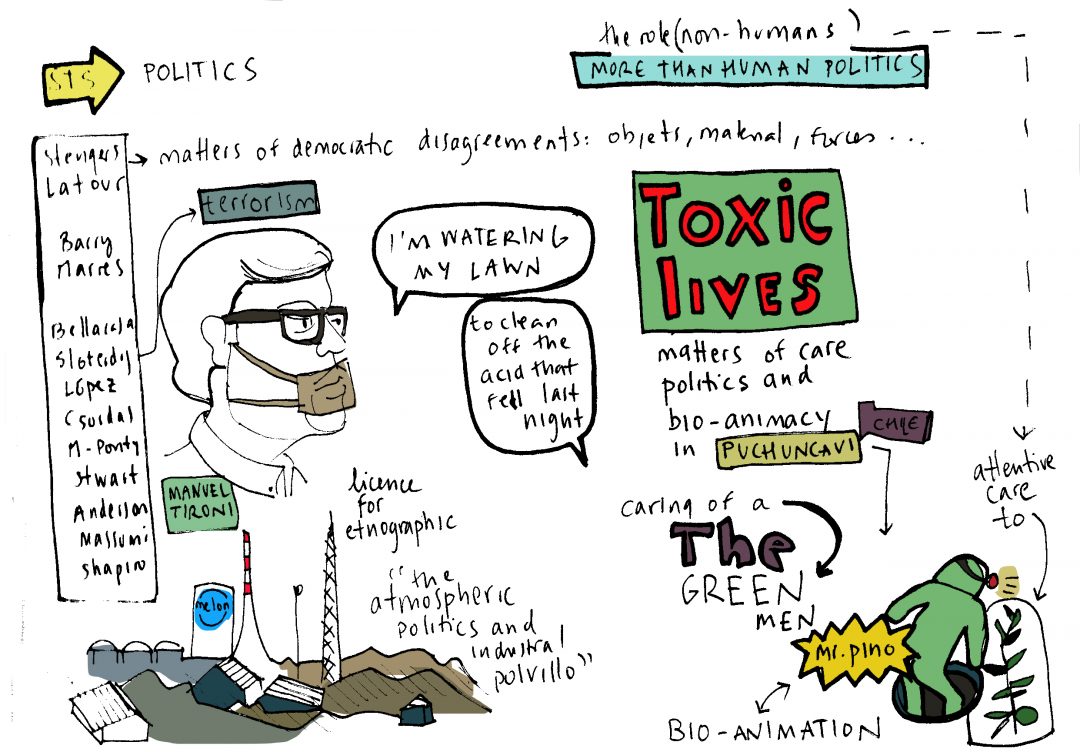 STS
POLITICS
the role (non-humans)
MORE THAN HUMAN POLITICS
Stengers
Latour
Barry
Marres
Bellacasa
Sloterdij
López
Csordas
M-Ponty
Stwart
Anderson
Massumi
Shapiro
matters of democratic disagreements: objets, material, forces ...
terrorism
I'M WATERING
MY LAWN
to clean
off the
acid that
fell last
night
MANUEL
TIRONI
licence
for
etnographic
"the
atmospheric
politics and
industral
polvillo"
melon
TOXIC
lIVES
matters of care
politics and
bio-animacy
in PUCHUNCAVI
CHILE
caring of a
The
GREEN
MEN
attentive
care
to
Mr. pino
BIO-ANIMATION